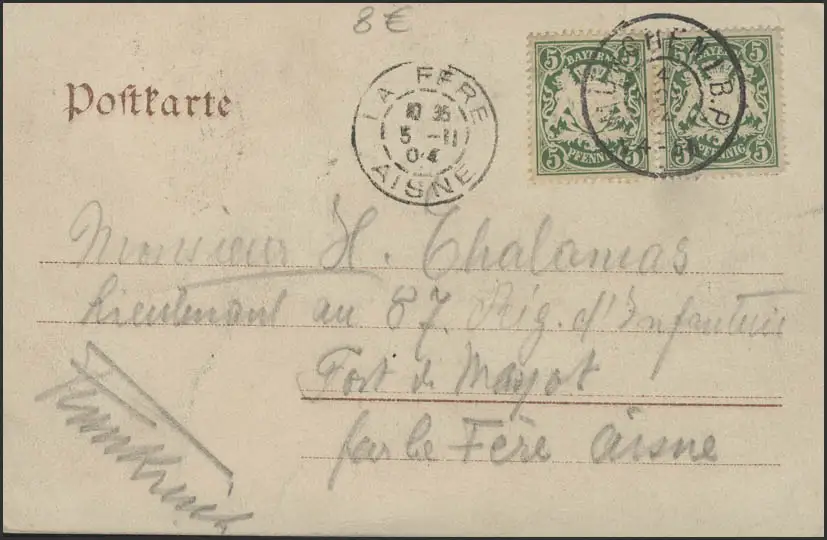 8 €
Postkarte
LA FÈRE
10 35
5 - 11
04
AISNE
5 BAYERN 5
5 PFENNIG 5
5 BAYERN 5
5 PFENNIG 5
SHEIM B.P.
Monsieur H. Chalamas
Lieutenant au 87 Rég. d'Infanterie
Fort de Mayot
par la Fère Aisne
Frankreich